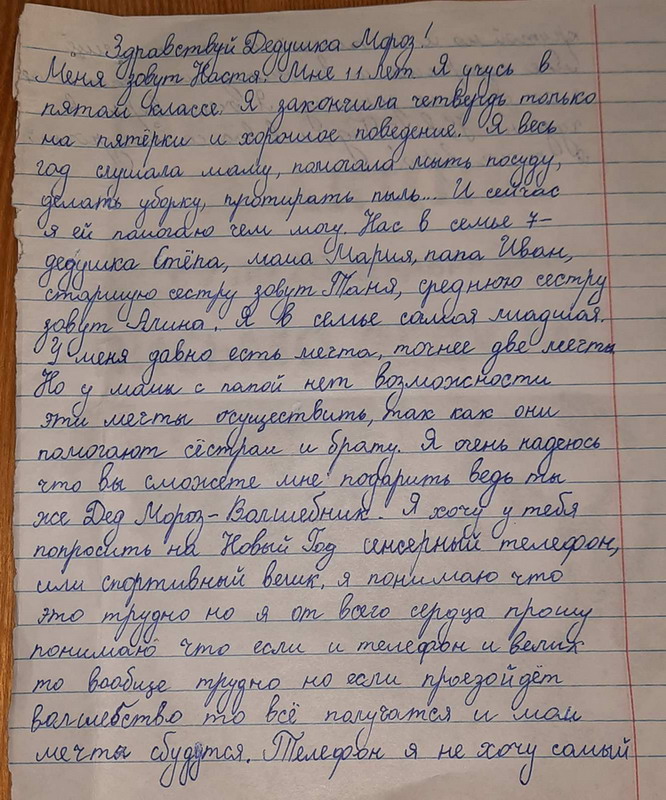 Здравствуй Дедушка Мороз!
Меня зовут Настя. Мне 11 лет Я учусь в
пятом классе. Я закончила четверть только
на пятёрки и хорошое поведение. Я весь
год слушала маму, помогала мыть посуду,
делать уборку, протирать пыль... И сейчас
я ей помогаю чем могу. Нас в семье 7-
дедушка Стёпа, мама Мария, папа Иван,
старшую сестру зовут Таня, среднюю сестру
зовут Алина. Я в семье самая младшая.
У меня давно есть мечта, точнее две мечты
Но у мамы с папой нет возможности
эти мечты осуществить, так как они
помогают сёстрам и брату. Я очень надеюсь
что вы сможете мне подарить ведь ты
же Дед Мороз-Волшебник. Я хочу у тебя
попросить на Новый Год сенсерный телефон,
или спортивный велик, я понимаю что
это трудно но я от всего сердца прошу
понимаю что если и телефон и велик
то вообще трудно но если проезойдёт
волшебство то всё получатся и мои
мечты сбудутся. Телефон я не хочу самый